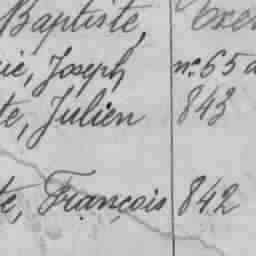 Baptiste,
ie, Joseph nº 65
te, Julien 843
te, François 842